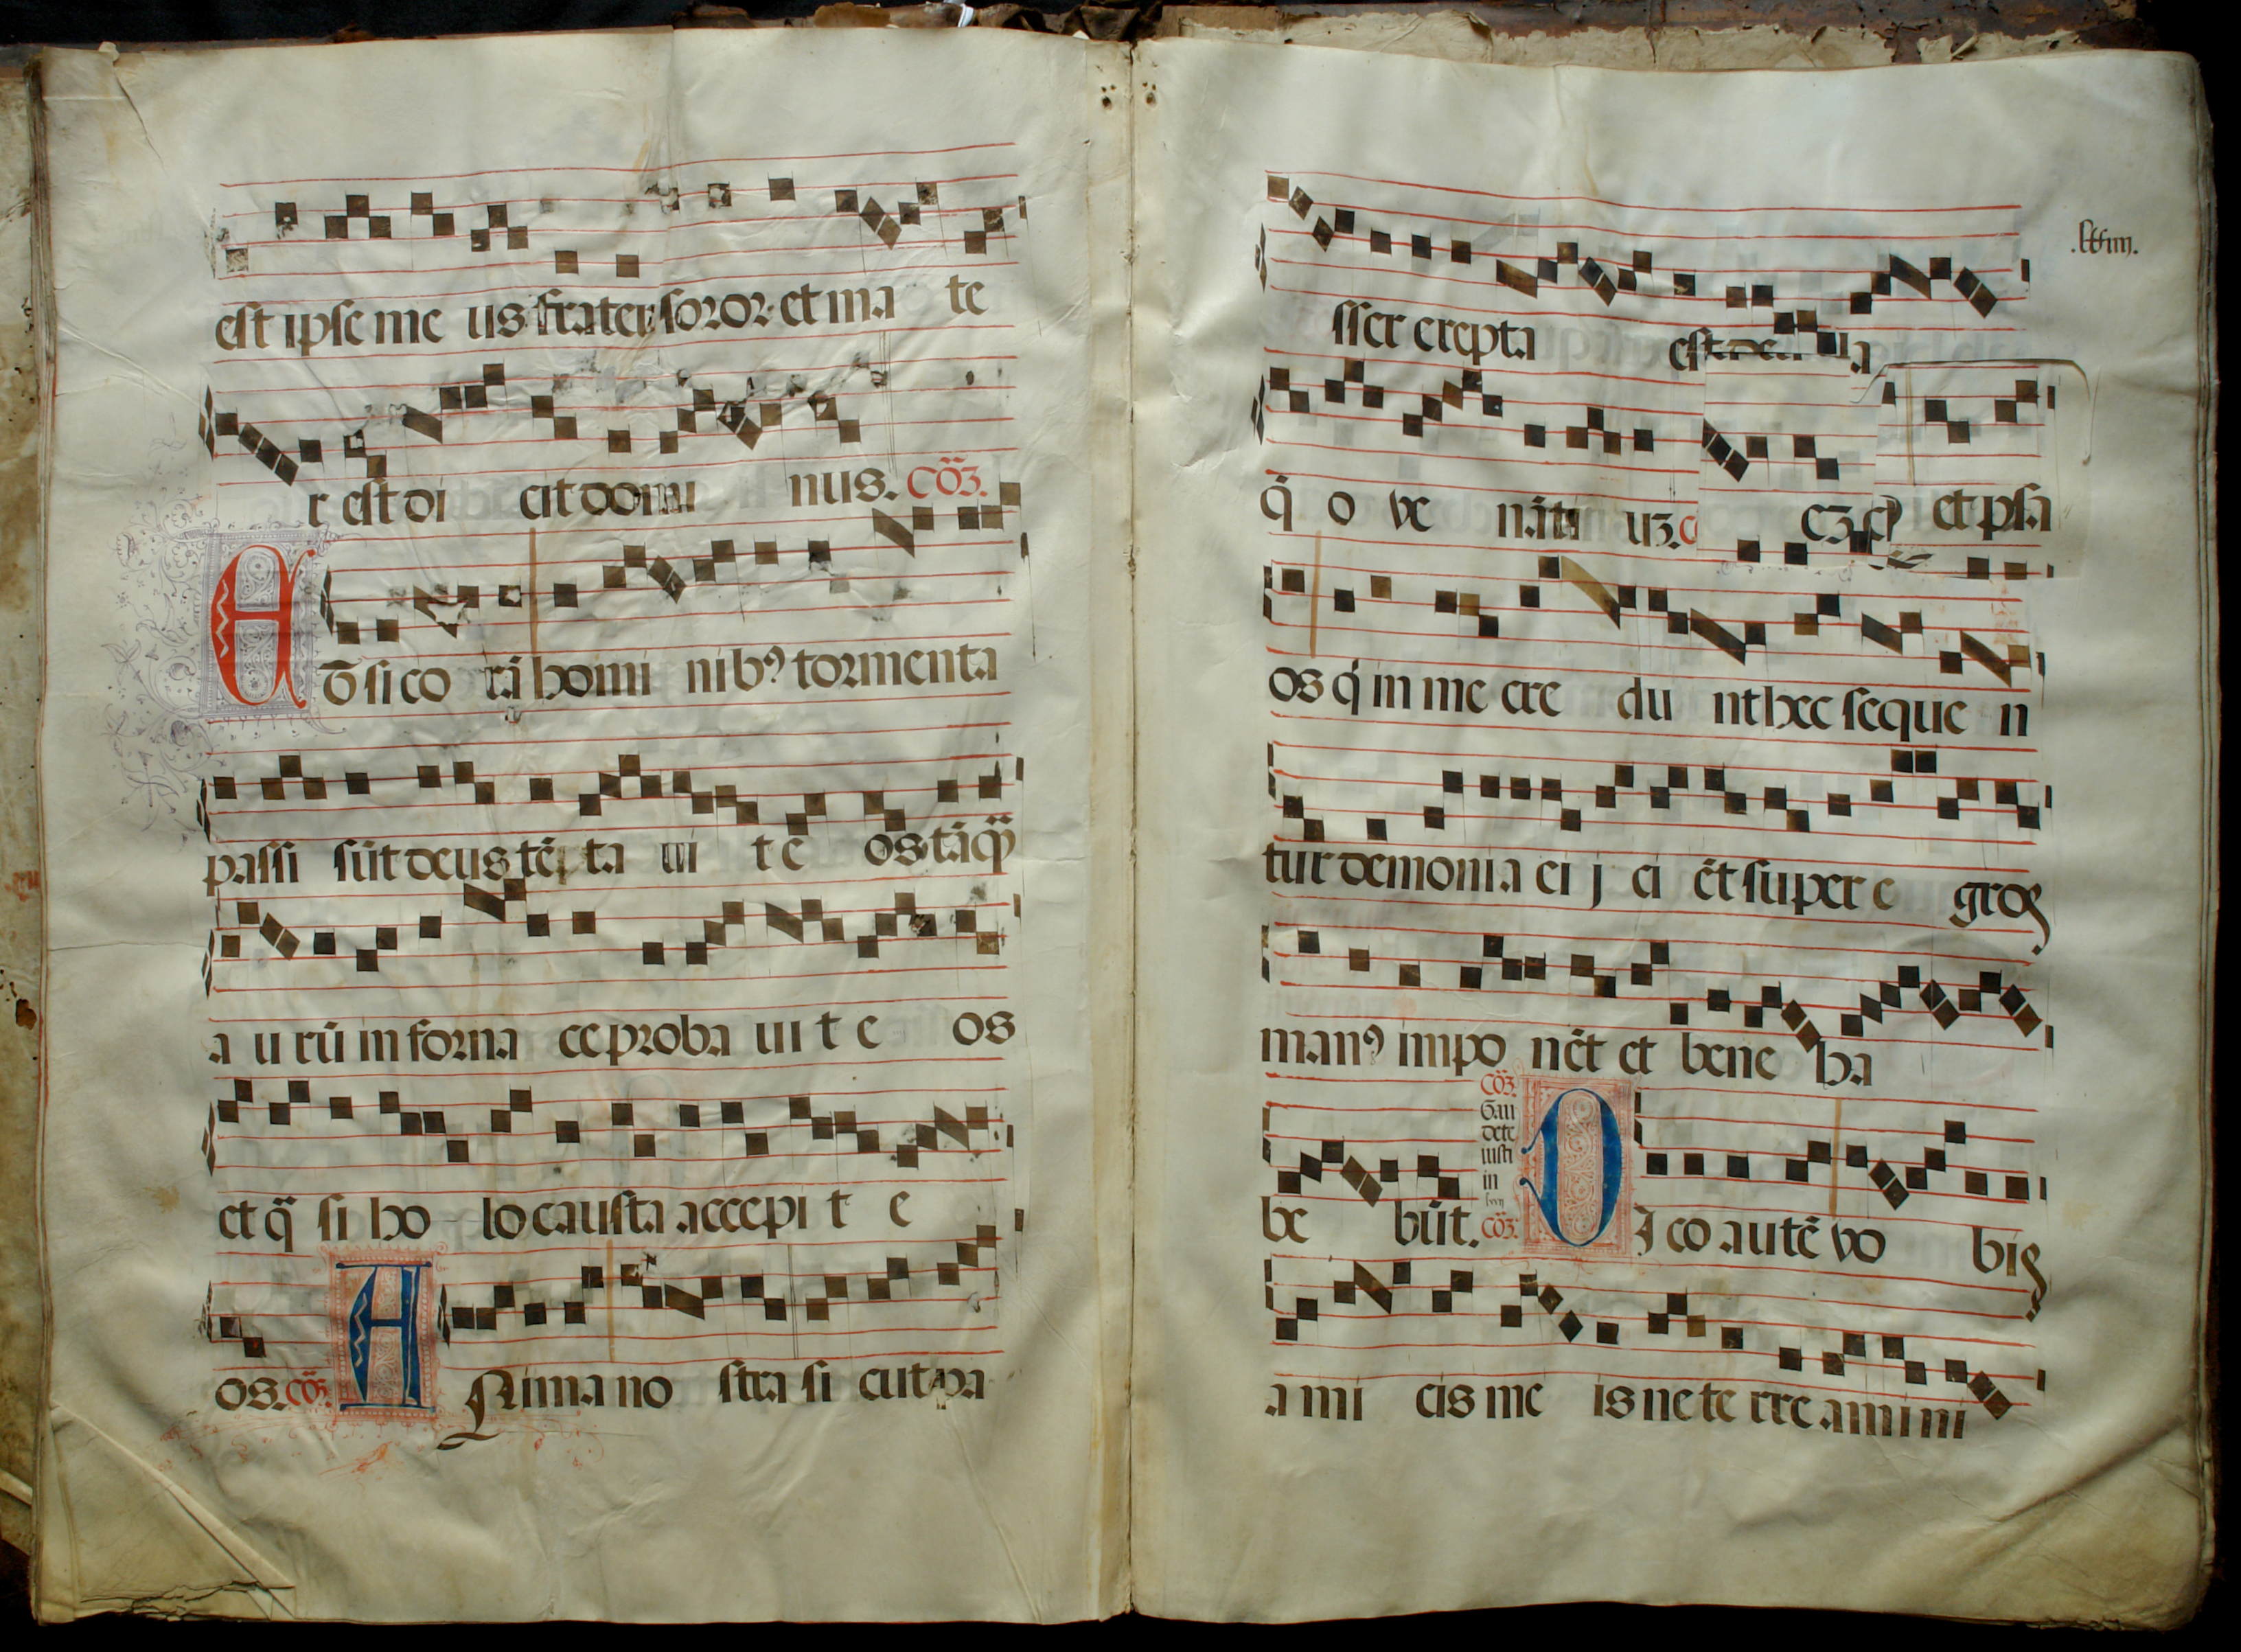 est ipse me us frater soror et ma te
r est di cit domi nus. cõ̃ꝫ.
E t̄ si co rã homi nibꝰ tormenta
passi sũt deus tẽ ta ui t e os tãq̃
a u rũ in forna ce proba ui t e os
et q̃ si ho lo causta accepi t e
os. cõꝫ. A Nima no stra si cut pa
.lxxiiij.
sser erepta est de la
q̃ o ve nãti uꝫ. c eꝫ. et psa
os q̇ in me cre du nt hec seque n
tur demonia ei j ci ẽt super e gros
manꝰ impo nẽt et bene ha
be bũt.
cõꝫ.
Gau
dete
iusti
in
cõꝫ.
D J co autẽ vo bis
a mi cis me is ne te rre amini